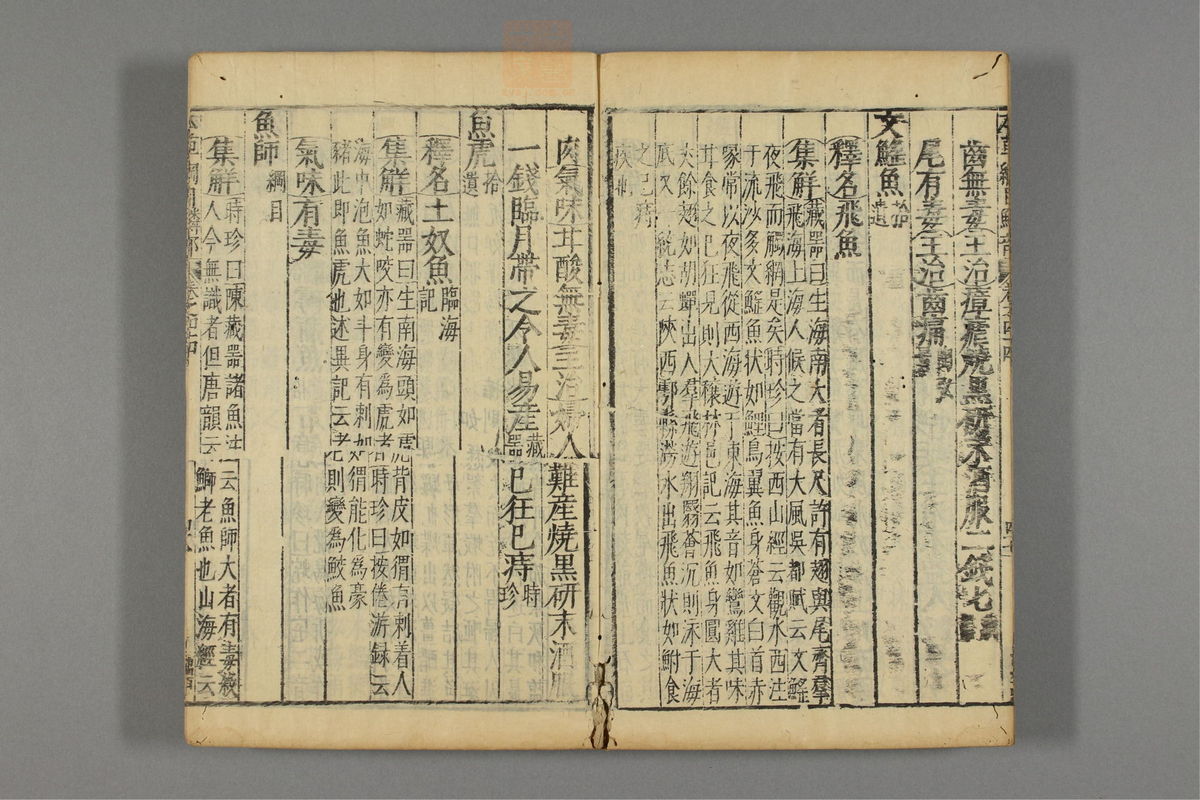 齒無毒主治瘴瘧燒黑研末酒服二錢
尾有毒主治齒痛
文鰩魚拾遺
釋名飛魚
集解藏器曰生海南大者長尺許有翅與尾齊羣
飛海上海人候之當有大風吳都賦云文鰩
夜飛而觸網是矣時珍曰按西山經云觀水西注
于流沙多文鰩魚狀如鯉鳥翼魚身蒼文白首赤
喙常以夜飛從西海遊于東海其音如鸞雞其味
甘食之已狂見則大穰林邑記云飛魚身圓大者
丈餘翅如胡蟬出入羣飛遊翔翳薈沉則泳于海
底又一統志云陝西鄠縣澇水出飛魚狀如鮒食
之已痔疾
肉氣味甘酸無毒主治婦人難産燒黑研末酒服
一錢臨月帶之令人易産藏器已狂已痔時珍
魚虎拾遺
釋名土奴魚臨海記
集解藏器曰生南海頭如虎背皮如猬有刺着人
如蛇咬亦有變爲虎者時珍曰按倦游録云
海中泡魚大如斗身有刺如猬能化爲豪
豬此即魚虎也述異記云老則變爲鮫魚
氣味有毒
魚師綱目
集解時珍曰陳藏器諸魚注云魚師大者有毒殺
人今無識者但唐韻云鰤老魚也山海經云